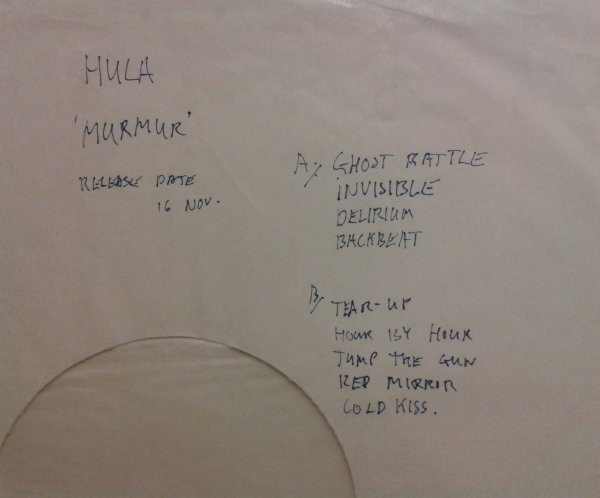 HULA
'MURMUR'
RELEASE DATE
16 NOV.
A/ GHOST BATTLE
INVISIBLE
DELIRIUM
BACKBEAT
B/ TEAR-UP
HOUR BY HOUR
JUMP THE GUN
RED MIRROR
COLD KISS.